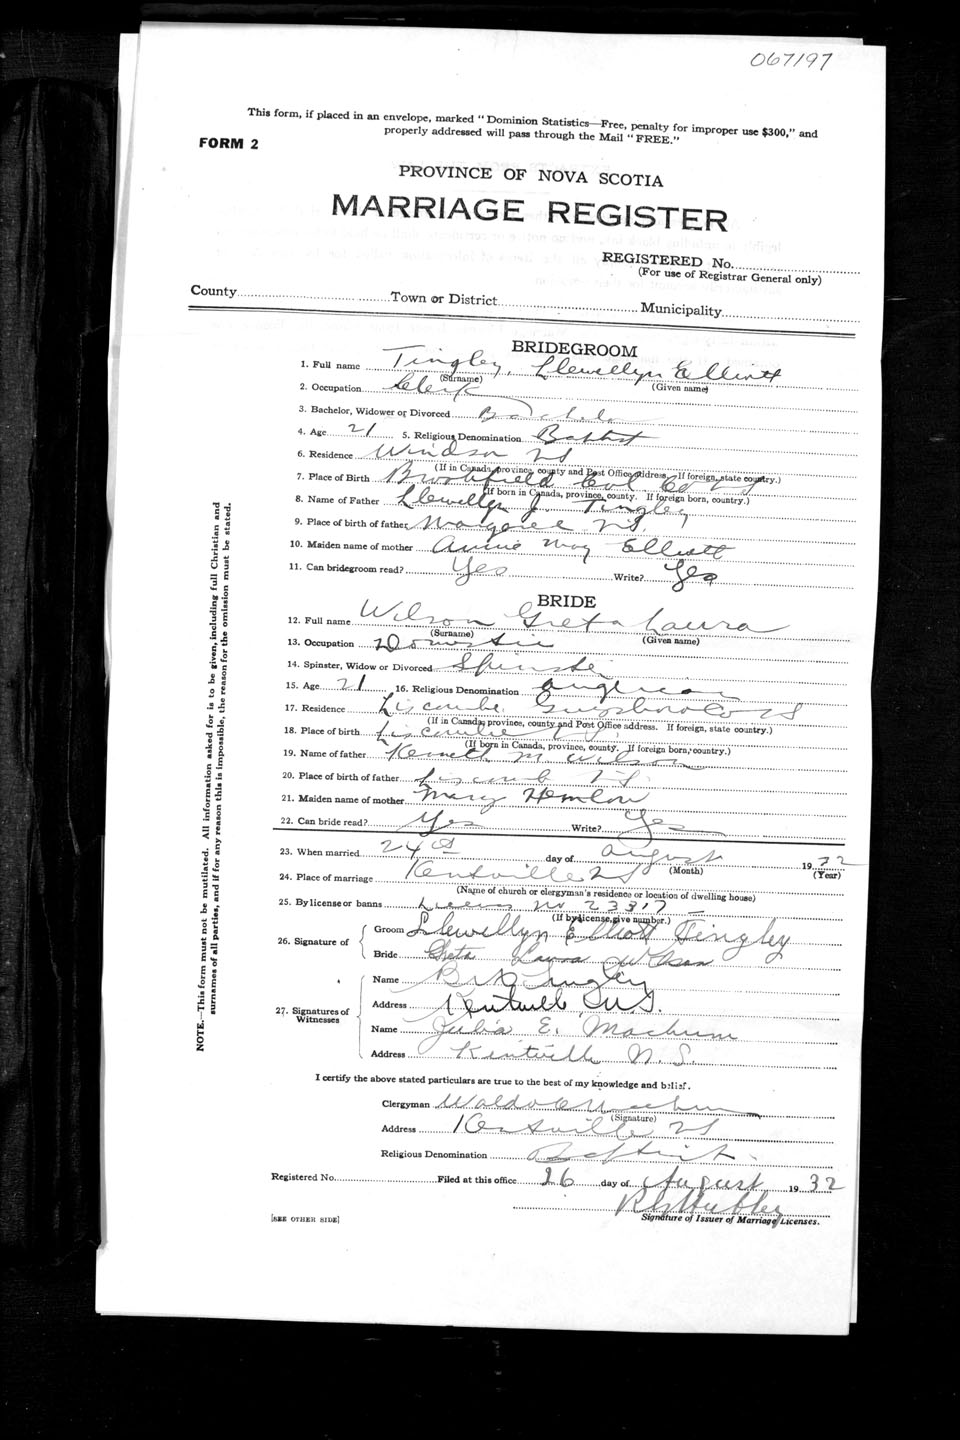 067197
This form, if placed in an envelope, marked "Dominion Statistics—Free, penalty for improper use $300," and
properly addressed will pass through the Mail "FREE."
FORM 2
PROVINCE OF NOVA SCOTIA
MARRIAGE REGISTER
REGISTERED No.
(For use of Registrar General only)
County Town or District Municipality
BRIDEGROOM
1. Full name Tingley, Llewellyn Elliott
(Surname) (Given name)
2. Occupation Clerk
3. Bachelor, Widower or Divorced Bachelor
4. Age 21 5. Religious Denomination Baptist
6. Residence Windsor NS
(If in Canada, province, county and Post Office address. If foreign, state country.)
7. Place of Birth Brookfield Col Co NS
(If born in Canada, province, county. If foreign born, country.)
8. Name of Father Llewellyn J. Tingley
9. Place of birth of father Margaree N.S.
10. Maiden name of mother Annie May Elliott
11. Can bridegroom read? Yes Write? Yes
BRIDE
12. Full name Wilson Greta Laura
(Surname) (Given name)
13. Occupation Domestic
14. Spinster, Widow or Divorced Spinster
15. Age 21 16. Religious Denomination Anglican
17. Residence Liscombe Guysboro Co NS
(If in Canada, province, county and Post Office address. If foreign, state country.)
18. Place of birth Liscombe NS
(If born in Canada, province, county. If foreign born, country.)
19. Name of father M Wilson
20. Place of birth of father Liscomb NS
21. Maiden name of mother Mary Hemlow
22. Can bride read? Yes Write? Yes
23. When married 24th day of August 1932
(Month) (Year)
24. Place of marriage Kentville NS
(Name of church or clergyman's residence or location of dwelling house)
25. By license or banns License No 23317
(If by license, give number.)
26. Signature of Groom Llewellyn Elliott Tingley
Bride Greta Laura Wilson
27. Signatures of Witnesses
Name Tingley
Address Kentville, N.S.
Name Julia E. Machum
Address Kentville N.S.
I certify the above stated particulars are true to the best of my knowledge and belief.
Clergyman Waldo C Machum
(Signature)
Address Kentville NS
Religious Denomination Baptist
Registered No. Filed at this office 26 day of August 1932
[SEE OTHER SIDE] Signature of Issuer of Marriage Licenses.
NOTE.—This form must not be mutilated. All information asked for is to be given, including full Christian and
surnames of all parties, and if for any reason this is impossible, the reason for the omission must be stated.